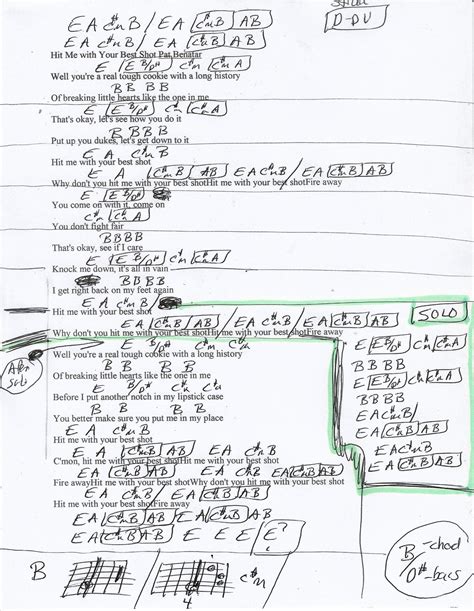 E A C#m B / E A [C#m B] [AB]
D-DU
E A C#m B / E A [C#m B] [AB]
Hit Me with Your Best Shot Pat Benatar
E [E B/D#] C#m [C#m A]
Well you're a real tough cookie with a long history
B B B B
Of breaking little hearts like the one in me
E [E B/D#] C#m [C#m A]
That's okay, let's see how you do it
B B B B
Put up you dukes, let's get down to it
E A C#m B
Hit me with your best shot
E A [C#m B] [AB] E A C#m B / E A [C#m B] [AB]
Why don't you hit me with your best shotHit me with your best shotFire away
E [E B/D#]
You come on with it, come on
C#m [C#m A]
You don't fight fair
B B B B
That's okay, see if I care
E [E B/D#] C#m [C#m A]
Knock me down, it's all in vain
B B B B
I get right back on my feet again
E A C#m B /
Hit me with your best shot
E A [C#m B] [AB] / E A C#m B / E A [C#m B] [AB]
Why don't you hit me with your best shotHit me with your best shotFire away
SOLO
E [E B/D#] C#m [C#m A]
B B B B
E [E B/D#] C#m [C#m A]
B B B B
E A C#m B /
E A [C#m B] [AB]
E A C#m B
E A [C#m B] [AB]
After
Solo
E B/D# C#m
Well you're a real tough cookie with a long history
B B B B
Of breaking little hearts like the one in me
E B/D# C#m C#m A
Before I put another notch in my lipstick case
B B B B
You better make sure you put me in my place
E A C#m B
Hit me with your best shot
E A [C#m B] [AB] E A C#m B
C'mon, hit me with your best shotHit me with your best shot
E A [C#m B] [AB] E A C#m B E A [C#m B] [AB]
Fire awayHit me with your best shotWhy don't you hit me with your best shot
E A C#m B / E A [C#m B] [AB]
Hit me with your best shotFire away
E A C#m B / E A [C#m B] [AB]
Hit me with your best shot
E A [C#m B] [AB] E A [C#m B] [AB]
E A [C#m B] [AB] E E E [E?]
B
C#m
4
B-chord
D#-bass